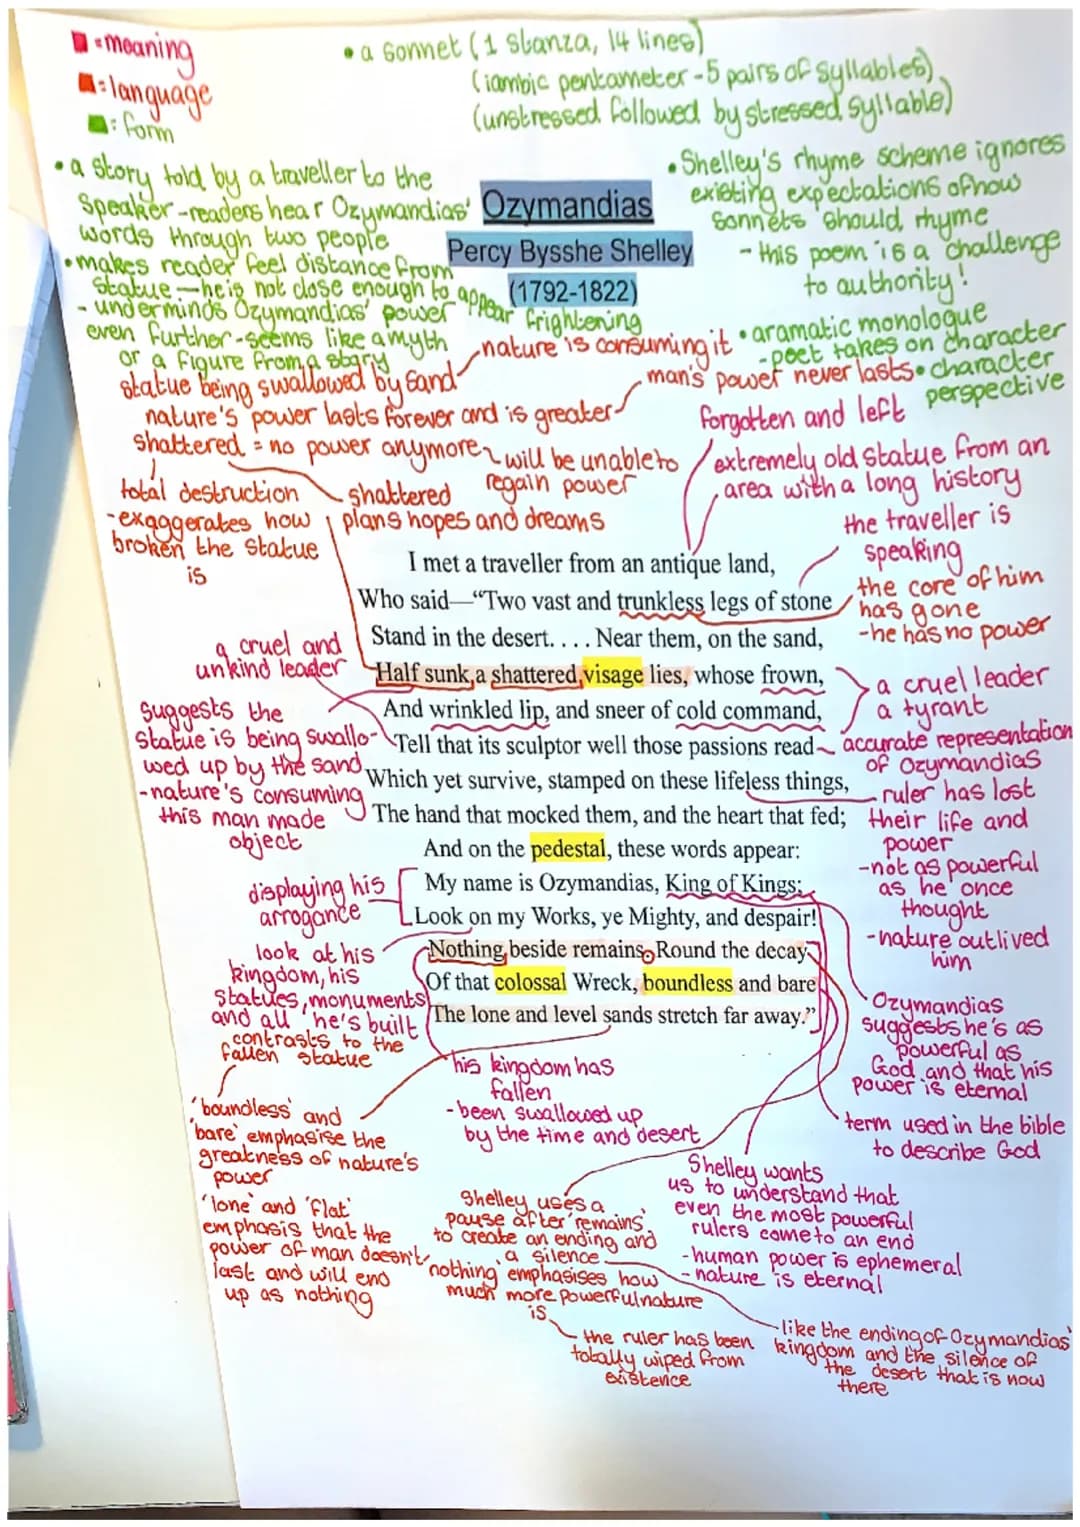 =meaning
=language
=form
• a sonnet (1 stanza, 14 lines)
(iambic pentameter - 5 pairs of syllables)
(unstressed followed by stressed syllable)
• a story told by a traveller to the
speaker - readers hear Ozymandias'
words through two people
• makes reader feel distance from
statue — he is not close enough to appear frightening
- underminds Ozymandias' power
even further - seems like a myth
or a figure from a story
Ozymandias
Percy Bysshe Shelley
(1792-1822)
• Shelley's rhyme scheme ignores
existing expectations of how
sonnets should rhyme
- this poem is a challenge
to authority!
• aramatic monologue
- poet takes on character
• character
perspective
nature is consuming it
statue being swallowed by sand
man's power never lasts
nature's power lasts forever and is greater
shattered = no power anymore
will be unable to
regain power
total destruction
- exaggerates how
broken the statue
is
shattered
plans hopes and dreams
forgotten and left
extremely old statue from an
area with a long history
the traveller is
speaking
the core of him
has gone
- he has no power
I met a traveller from an antique land,
Who said—“Two vast and trunkless legs of stone
Stand in the desert. . . . Near them, on the sand,
Half sunk, a shattered visage lies, whose frown,
And wrinkled lip, and sneer of cold command,
Tell that its sculptor well those passions read
Which yet survive, stamped on these lifeless things,
The hand that mocked them, and the heart that fed;
And on the pedestal, these words appear:
My name is Ozymandias, King of Kings;
Look on my Works, ye Mighty, and despair!
Nothing beside remains. Round the decay
Of that colossal Wreck, boundless and bare
The lone and level sands stretch far away.”
a cruel and
unkind leader
suggests the
statue is being swallo-
wed up by the sand
- nature's consuming
this man made
object
displaying his
arrogance
look at his
kingdom, his
statues, monuments
and all he's built
contrasts to the
fallen statue
a cruel leader
a tyrant
accurate representation
of Ozymandias
ruler has lost
their life and
power
- not as powerful
as he once
thought
- nature outlived
him
Ozymandias
suggests he's as
powerful as
God and that his
power is eternal
term used in the bible
to describe God
his kingdom has
fallen
- been swallowed up
by the time and desert
'boundless' and
'bare' emphasise the
greatness of nature's
power
'lone' and 'flat'
emphasis that the
power of man doesn't
last and will end
up as nothing
Shelley uses a
pause after 'remains'
to create an ending and
a silence
'nothing' emphasises how
much more powerful nature
is
the ruler has been
totally wiped from
existence
Shelley wants
us to understand that
even the most powerful
rulers come to an end
- human power is ephemeral
- nature is eternal
like the ending of Ozymandias'
kingdom and the silence of
the desert that is now
there